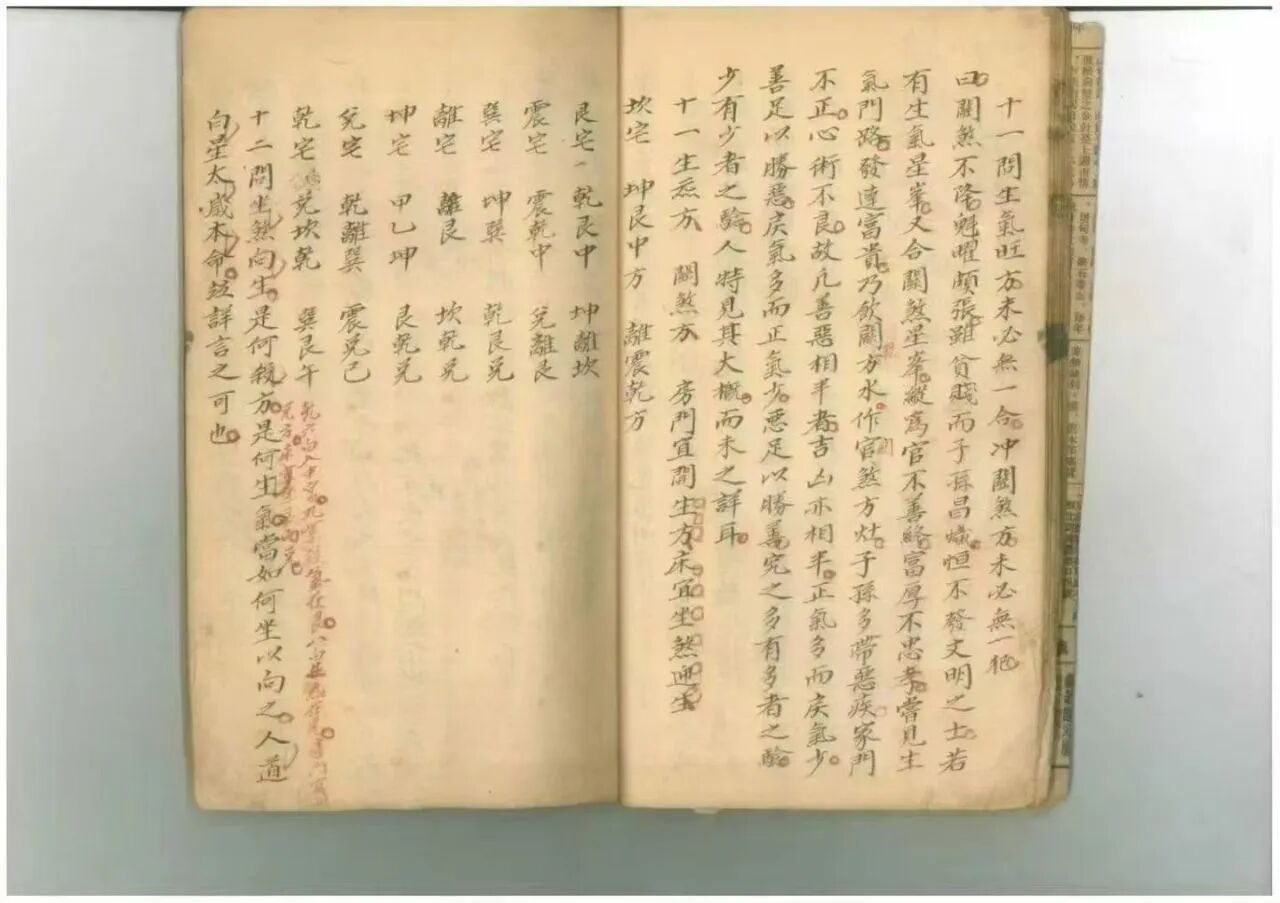 十一問生氣旺方未必無一合冲關煞方未必無一犯
曰關煞不降魁曜頗張雖貧賤而子孫昌熾恒不發文明之士若
有生氣星峯又合關煞星峯縱爲官不善終富厚不忠孝嘗見生
氣門路發達富貴乃飲關方水作官煞方灶子孫多帶惡疾家門
不正心術不良故凡善惡相半者吉凶亦相半正氣多而戾氣少
善足以勝惡戾氣多而正氣少悪足以勝善究之多有多者之驗
少有少者之驗人特見其大概而未之詳耳
十一生炁方 關煞方 房門宜開生方床宜坐煞迎生
坎宅 坤艮中方 離震乾方
艮宅 乾艮中 坤離坎
震宅 震乾中 兌離艮
巽宅 坤巽 乾艮兌
離宅 離艮 坎乾兌
坤宅 甲乙坤 艮乾兌
兌宅 乾離巽 震兌己
乾宅 兌坎乾 巽艮午
十二問坐煞向生是何殺方是何生氣當如何坐以向之人道
白星太歲本命竝詳言之可也